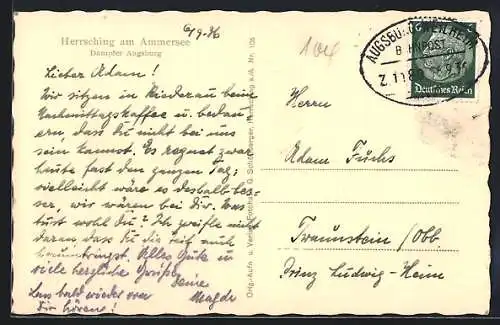 6/9.36
104
Herrsching am Ammersee
Dampfer Augsburg
Lieber Adam!
Wir sitzen in Riederau beim
Nachmittagskaffee u. bedau-
ern, dass Du nicht bei uns
sein kannst. Es regnet zwar
heute fast den ganzen Tag;
vielleicht wäre es deshalb bes-
ser, wir wären bei Dir. Was
tust wohl du? Ich zweifle nicht
daran dass Du die Zeit auch
herumbringst. Alles Gute u.
viele herzliche Grüße
Deine
Magda
Lass bald wieder von
Dir hören!
Orig.-Aufn. u. Verlag
AUGSBURG WEILHEIM
BAHNPOST
Deutsches Reich
Herrn
Adam Fuchs
Traunstein /Obb
Prinz Ludwig-Heim